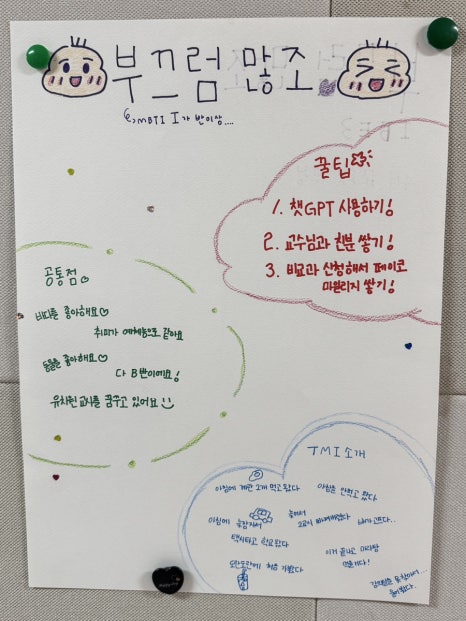 부끄럼 많조
↳MBTI I가 반이상....
꿀팁
1. 챗GPT 사용하기!
2. 교수님과 친분 쌓기!
3. 비교과 신청해서 페이코
마일리지 쌓기!
공통점
바다를 좋아해요♡
취미가 예체능으로 같아요
동물을 좋아해요♡
다 B반이에요!
유치원 교사를 꿈꾸고 있어요
TMI소개
아침에 계란 2개 먹고 왔다
아침을 안먹고 왔다
아침에 늦잠자서
택시타고 학교왔다
배가고프다..
도란도란에 처음 가봤다
이거 끝나고 마라탕
먹는다!